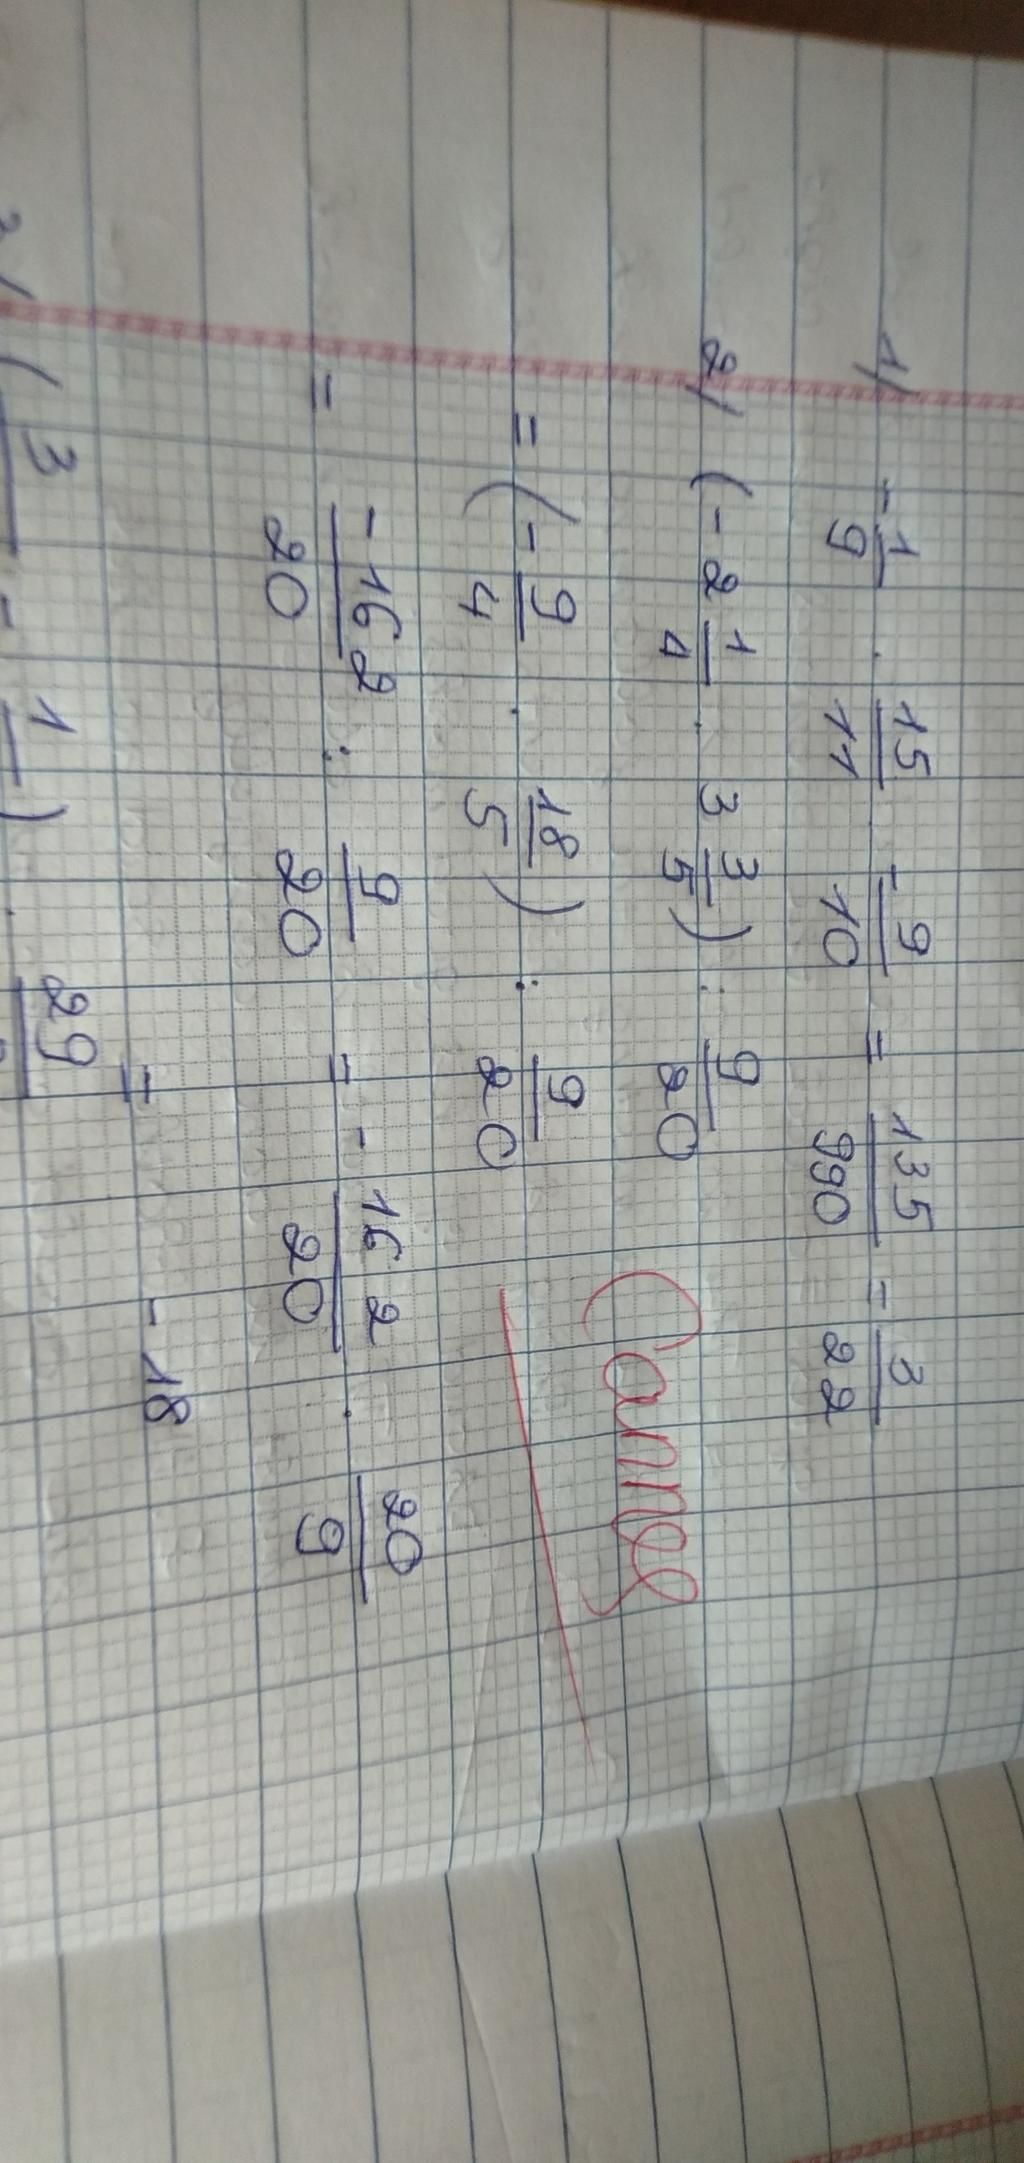 1/ -1/9 . 15/11 -9/10 = 135/990 = 3/22
2/ (-2 1/4 . 3 3/5) : 9/20
= (-9/4 . 18/5) : 9/20
= -162/20 : 9/20 = -162/20 . 20/9
= -18
( 3 - 1 ) . 29